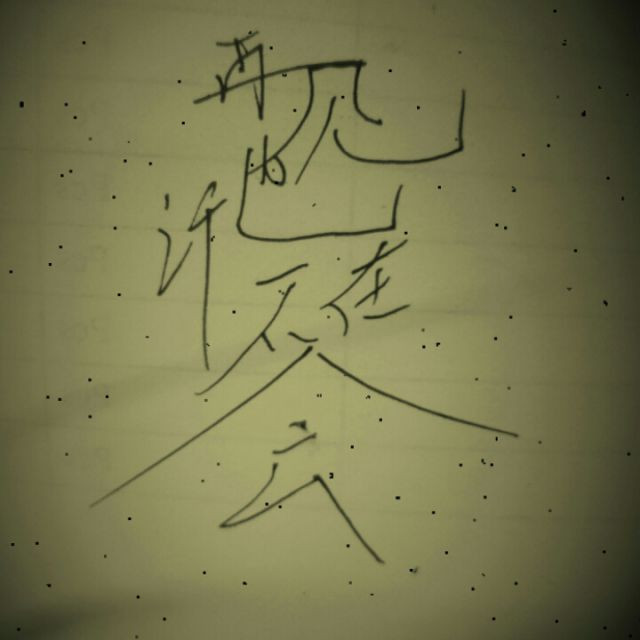 再见
也
许不在
会